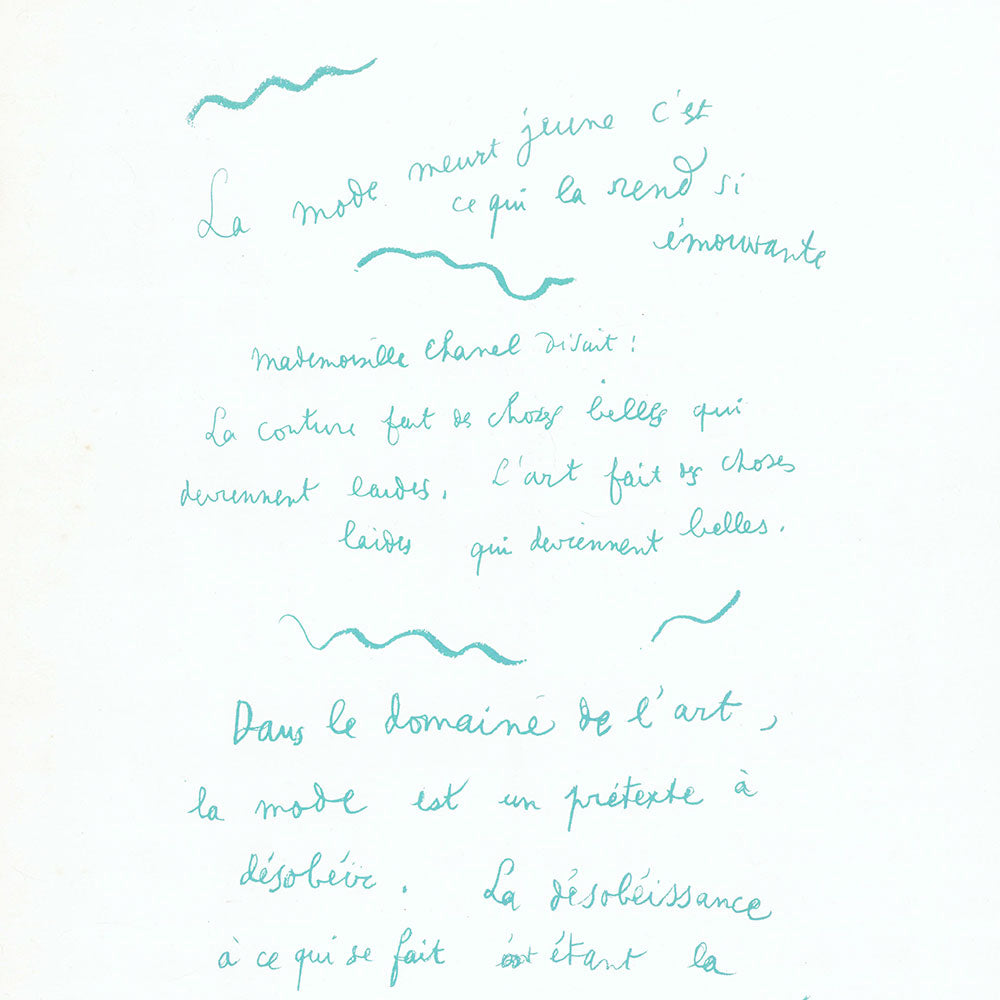 La mode meurt jeune c'est
ce qui la rend si
émouvante
Mademoiselle Chanel disait :
La couture fait des choses belles qui
deviennent laides. L'art fait des choses
laides qui deviennent belles.
Dans le domaine de l'art,
la mode est un prétexte à
désobéir. La désobéissance
à ce qui se fait étant la